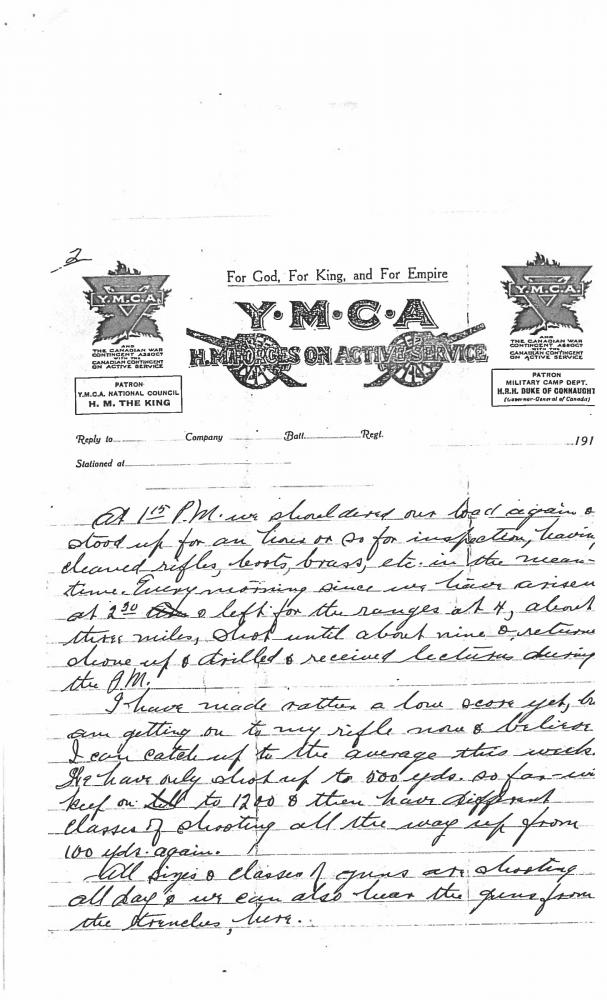 2
For God, For King, and For Empire
Y.M.C.A
Y·M·C·A
Y.M.C.A.
H.M. FORCES ON ACTIVE SERVICE
AND
THE CANADIAN WAR
CONTINGENT ASSOCT
WITH THE
CANADIAN CONTINGENT
ON ACTIVE SERVICE
AND
THE CANADIAN WAR
CONTINGENT ASSOCT
WITH THE
CANADIAN CONTINGENT
ON ACTIVE SERVICE
PATRON
Y.M.C.A. NATIONAL COUNCIL
H. M. THE KING
PATRON
MILITARY CAMP DEPT.
H.R.H. DUKE OF CONNAUGHT
(Governor-General of Canada)
Reply to Company Batt. Regt. 191
Stationed at
At 1 15 P.M. we shouldered our load again &
stood up for an hour or so for inspection, havin
cleaned rifles, boots, brass, etc. in the mean-
time. Every morning since we have arisen
at 2 30 & left for the ranges at 4, about
three miles, shot until about nine & returne
shone up & drilled & received lectures during
the P.M.
I have made rather a low score yet, b
am getting on to my rifle now & believe
I can catch up to the average this week.
We have only shot up to 500 yds. so far - wi
keep on till to 1200 & then have different
classes of shooting all the way up from
100 yds. again.
All sizes & classes of guns are shooting
all day & we can also hear the guns from
the trenches, here.